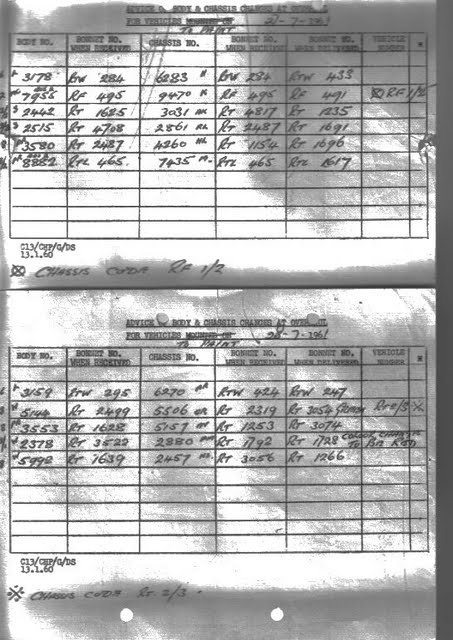 ADVICE BODY & CHASSIS CHANGES AT
FOR VEHICLES MOUNTED ON 21-7-1961
TO PAINT
BODY NO. BONNET NO. WHEN RECEIVED CHASSIS NO. BONNET NO. WHEN RECEIVED BONNET NO. WHEN DELIVERED VEHICLE NUMBER *
3178 RTW 284 6283 RTW 284 RTW 433
7955 RF 495 9470 RF 495 RF 491 RF 1/2
2442 RT 1625 3031 RT 4817 RT 1235
2515 RT 4708 2861 RT 2487 RT 1691
3580 RT 2487 4260 RT 1154 RT 1696
8852 RTL 465 7435 RTL 465 RTL 1617
C13/CHP/G/DS
13.1.60
CHASSIS CODA RF 1/2
ADVICE BODY & CHASSIS CHANGES AT
FOR VEHICLES MOUNTED ON -7-1961
TO PAINT
BODY NO. BONNET NO. WHEN RECEIVED CHASSIS NO. BONNET NO. WHEN RECEIVED BONNET NO. WHEN DELIVERED VEHICLE NUMBER *
3159 RTW 295 6270 RTW 424 RTW 247
5144 RT 2499 5506 RT 2319 RT 3054
3553 RT 1628 5157 RT 1253 RT 3074
2378 RT 3522 2880 RT 1792 RT 1728 COLOUR CHANGE TO BE RED
5992 RT 1639 2457 RT 3056 RT 1266
C13/CHP/G/DS
13.1.60
CHASSIS CODA RT 2/3